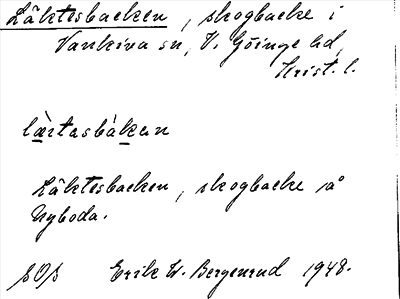 Läktesbacken, skogbacke i
Vankiva sn, V. Göinge hd,
Krist. l.
lærtasbakan
Läktesbacken, skogbacke på
Nyboda.
SOS Erik W. Bergenrud 1948.